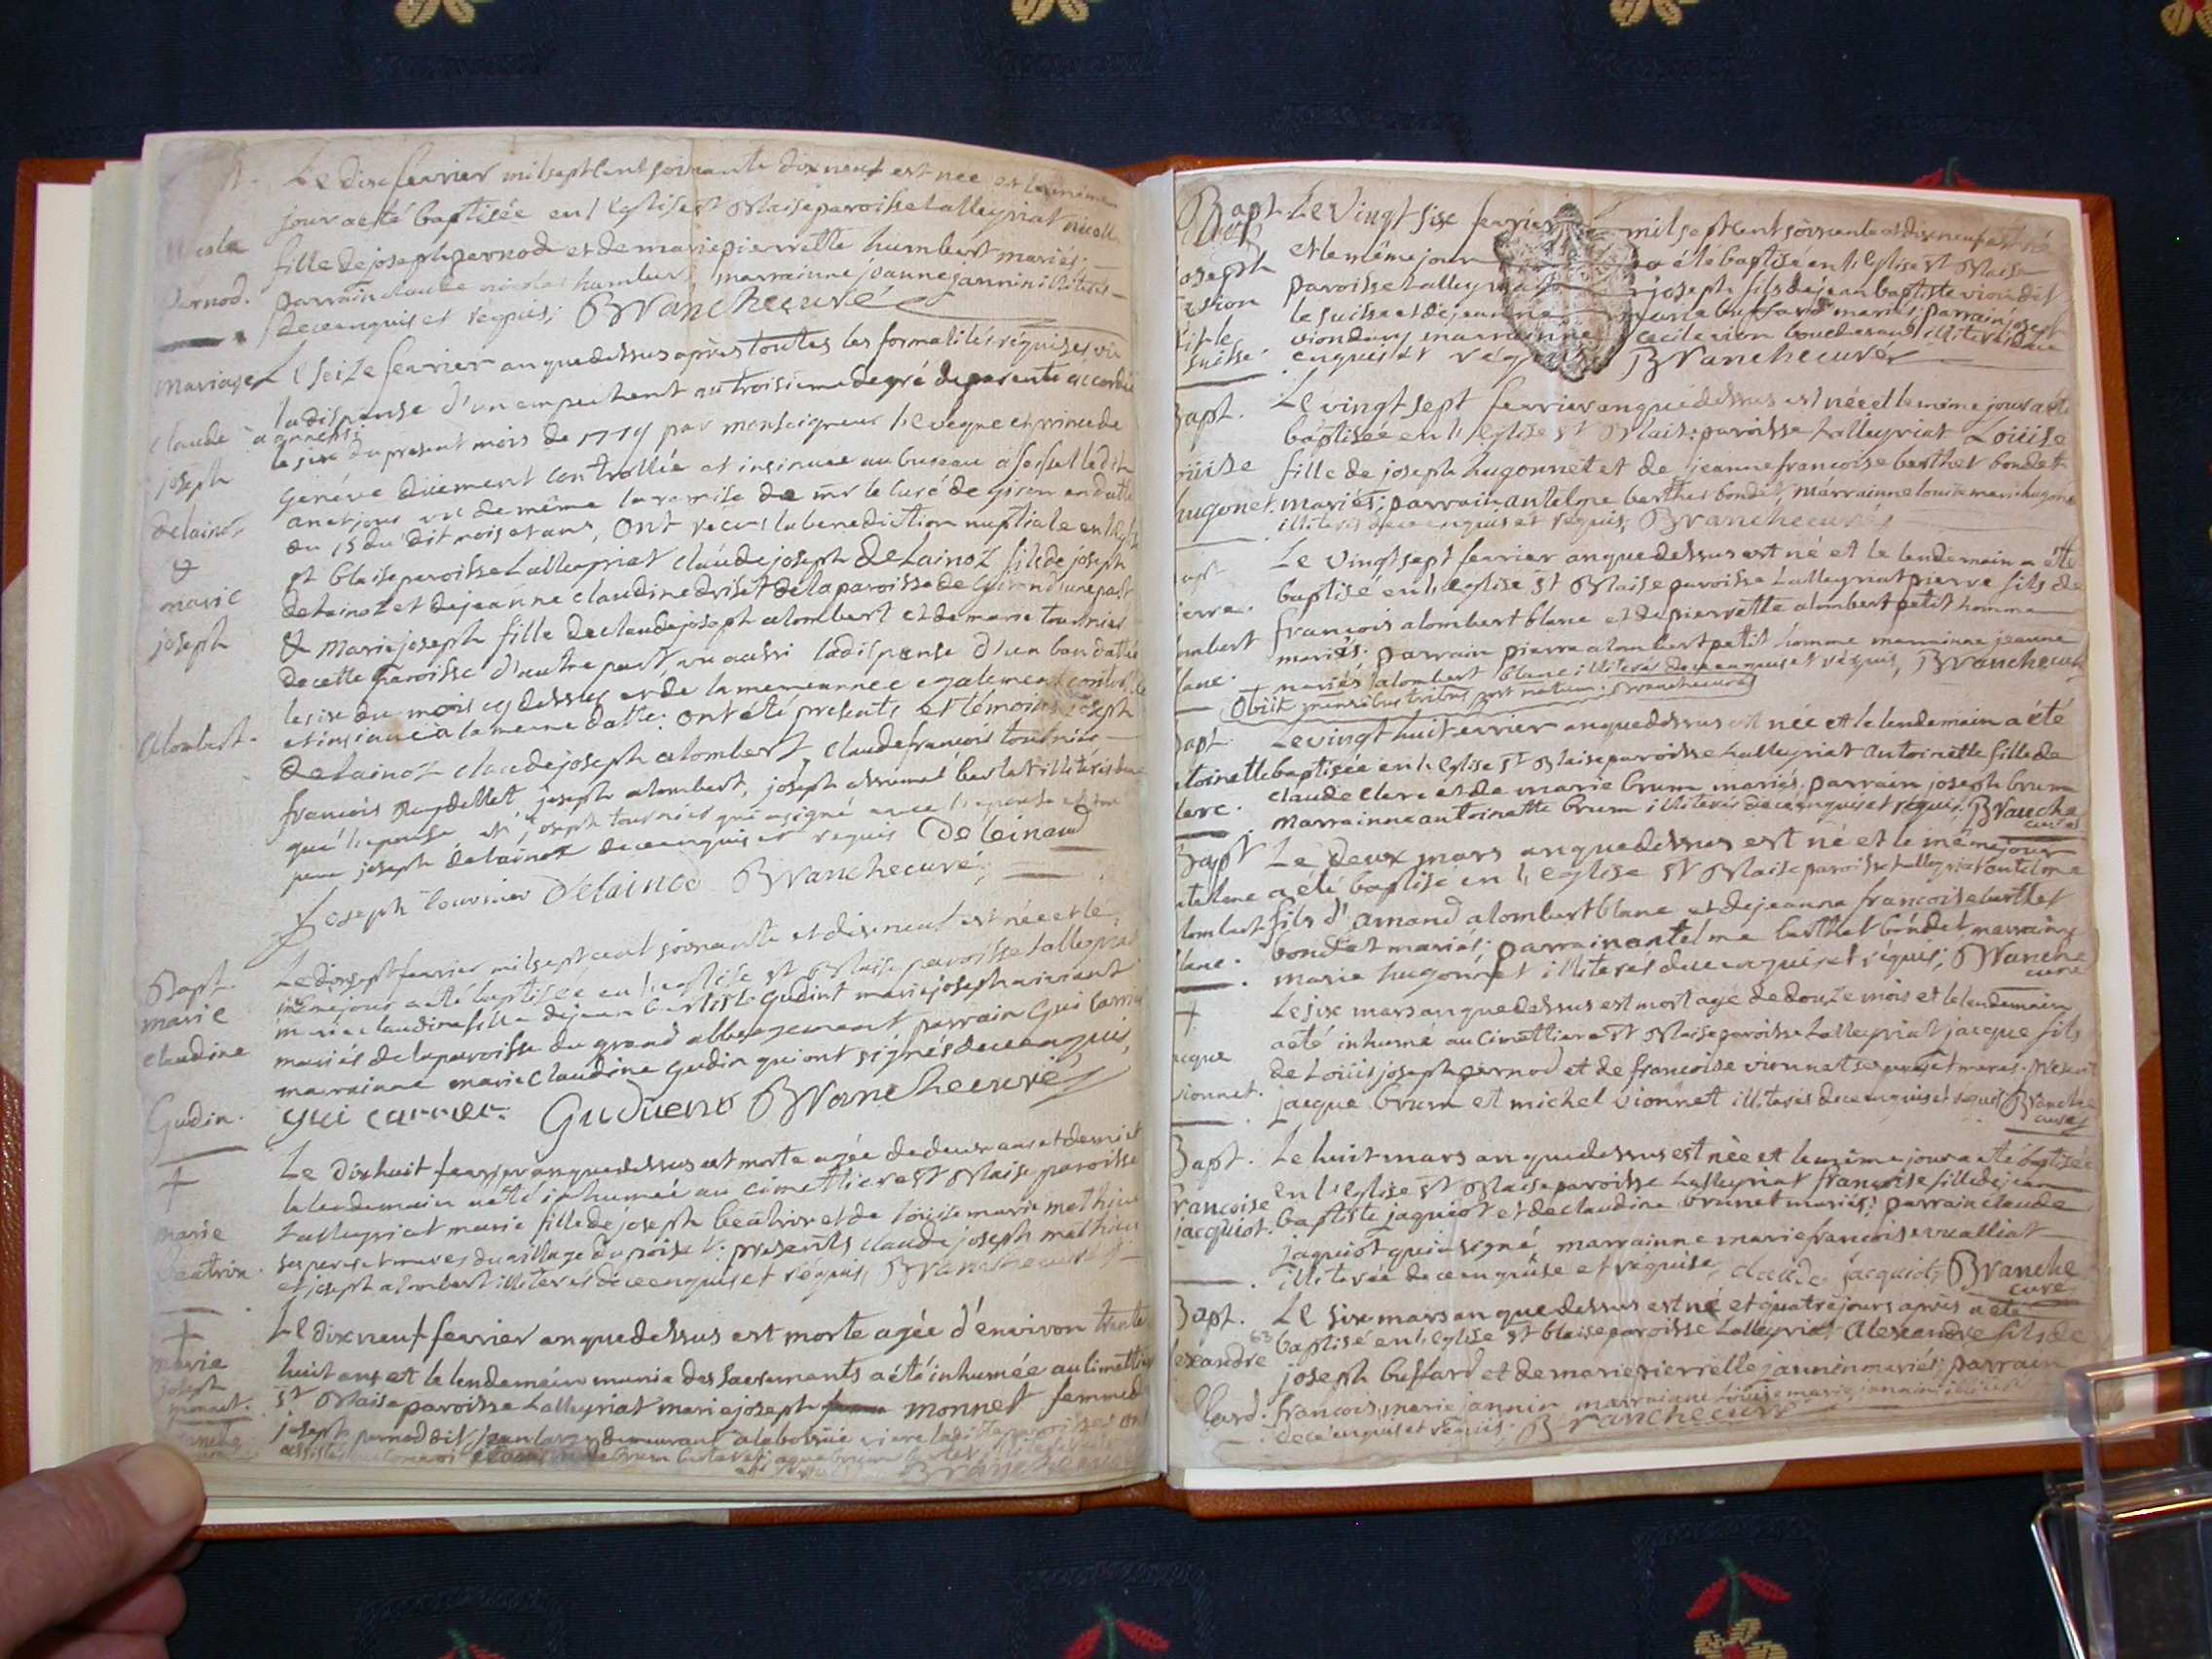 Le dix fevrier mil sept cent soixante dix neuf est née et le même
jour a été baptisée en l'Eglise St Blaise paroisse Lalleyriat nicolle
fille de joseph pernod et de marie pierrette humbert mariés.
parrain claude nicolas humbert marrainne jeanne jannin illiterés
de ce enquis et requis; Blanche curé
pernod.
Mariage
Le seize fevrier an que dessus après toutes les formalités réquises vu
la dispense d'un empechement au troisieme degré de parenté accordée
a annessi
le six du present mois de 1779 par monseigneur l'eveque et prince de
Genéve düement controllée et insinuée au bureau a seyssel le dit
an et jour vu de même la remise de mr le curé de giron en datte
du 15 du dit mois et ans, ont reçus la benediction nuptiale en l'eglise
st blaise paroisse Lalleyriat claude joseph Delainoz fils de joseph
delainoz et de jeanne claudine driset de la paroisse de Giron d'une part
& marie joseph fille de claude joseph alombert et de marie tournier
de cette paroisse d'autre part vu aussi la dispense d'un ban dattée
le six du mois cy dessus et de la meme année egalement controllée
et insinuée a la meme datte: ont été presents et témoins joseph
delainoz claude joseph alombert, claude françois tournier
françois joseph alombert, joseph
que l'epouse et joseph tournier qui a signé avec l'epoux et son
pere joseph delainoz de ce enquis et requis Deleinaud
claude
joseph
delainoz
&
marie
joseph
alombert.
Joseph tournier Delainod Blanche curé;
Bapt.
marie
claudine
Gudin.
Le dix sept fevrier mil sept cent soixante et dix neuf est née et le
même jour a été baptisée en l'eglise st Blaise paroisse Lalleyriat
marie claudine fille de jean baptiste Gudin et marie joseph
mariés de la paroisse du grand abbergement parrain Gui carrier
marrainne marie claudine gudin qui ont signés de ce enquis
gui carrier. Blanche curé
†
marie
beatrix.
Le dix huit fevrier an que dessus est morte agée de deux ans et demi et
le lendemain a été inhumée au cimettiere st Blaise paroisse
Lalleyriat marie fille de joseph beatrix et de loüise marie mathieu
ses pere et mere du village du poisat: presents claude joseph mathieu
et joseph alombert illiterés de ce enquis et requis, Blanche curé
†
marie
joseph
monnet.
Le dix neuf fevrier an que dessus est morte agée d'environ trente
huit ans et le lendemain munie des sacrements a été inhumée au cimettiere
st Blaise paroisse Lalleyriat marie joseph monnet femme de
joseph pernod dit
Blanche curé
Bapt.
joseph
vion
dit le
suisse.
Le vingt six fevrier mil sept cent soixante et dix neuf est né
et le même jour a été baptisé en l'Eglise st Blaise
paroisse Lalleyriat joseph fils de jean baptiste vion dit
le suisse et de jeanne marie buffard mariés; parrain joseph
viondury marrainne cecile vion illiterés de ce
enquis et requis Blanche curé
Bapt.
hugonet.
Le vingt sept fevrier an que dessus est née et le même jour a été
baptisée en l'eglise st Blaise paroisse Lalleyriat Loüise
fille de joseph hugonnet et de jeanne françoise berthet bondet
mariés; parrain antelme berthet bondet, marrainne louise marie hugonet
illiterés de ce enquis et réquis, Blanche curé
Le vingt sept fevrier an que dessus est né et le lendemain a été
baptisé en l'eglise st Blaise paroisse Lalleyriat pierre fils de
françois alombert blanc et de pierrette alombert petit homme
mariés: parrain pierre alombert petit homme marrainne jeanne
mariés alombert blanc illiterés de ce enquis et réquis, Blanche curé
Obiit mensibus tribus post natum: Blanche curé
Le vingt huit fevrier an que dessus est née et le lendemain a été
baptisée en l'eglise st Blaise paroisse Lalleyriat antoinette fille de
claude clerc et de marie brun mariés, parrain joseph brun
marrainne antoinette brun illiterés de ce enquis et requis, Blanche
curé
Bapt
Le deux mars an que dessus est né et le même jour
a été baptisé en l'eglise st Blaise paroisse Lalleyriat antelme
fils d'amand alombert blanc et de jeanne françoise berthet
bondet mariés; parrain antelme berthet bondet marrainne
marie hugonnet illiterés de ce enquis et réquis; Blanche
curé
†
Le six mars an que dessus est mort agé de douze mois et le lendemain
a été inhumé au cimettiere st Blaise paroisse Lalleyriat jacque fils
de Loüis joseph pernod et de françoise vionnet ses pere et mere. presents
jacque brun et michel vionnet illiterés de ce enquis et requis Blanche
curé
Bapt.
françoise
jacquiot.
Le huit mars an que dessus est née et le même jour a été baptisée
en l'eglise st Blaise paroisse Lalleyriat françoise fille de jean
baptiste jaquiot et de claudine brunet mariés; parrain claude
jaquiot qui a signé, marrainne marie françoise
illiterée de ce enquise et réquise, claude jacquiot, Blanche
curé
Bapt.
Le six mars an que dessus est né et quatre jours après a été
baptisé en l'eglise st blaise paroisse Lalleyriat Alexandre fils de
joseph buffard et de marie pierrette jannin mariés; parrain
françois marie jannin marrainne loüise marie jannin illiterés
de ce enquis et requis. Blanche curé